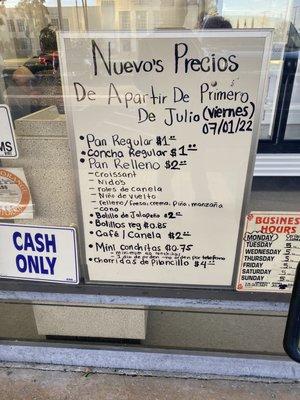 Nuevo's Precios
De Apartir De Primero
De Julio (viernes)
07/01/22
• Pan Regular $1.00
• Concha Regular $1.00
• Pan Relleno $2.00
- Croissant
- Nidos
- roles de canela
- Niño de vuelto
- relleno/fresa, crema, piña, manzana
- cono
• Bolillo de Jalapeño $2.00
• Bolillos reg $0.85
• Café/Canela $2.00
• Mini conchitas $0.75
- 1 dia de orden - no orden por telefono
• Chorridas de Piloncillo $4.00
CASH
ONLY
BUSINESS
HOURS
MONDAY
TUESDAY
WEDNESDAY
THURSDAY
FRIDAY
SATURDAY
SUNDAY